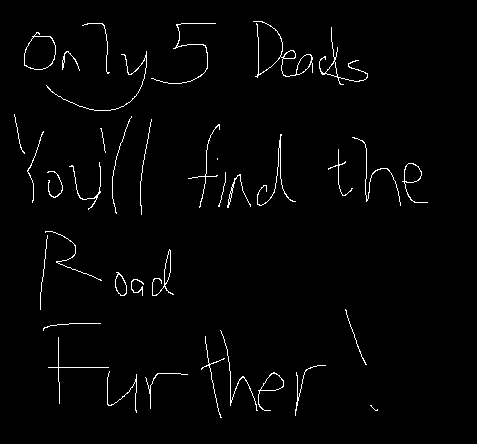 Only 5 Deads
You'll find the
Road
Further!